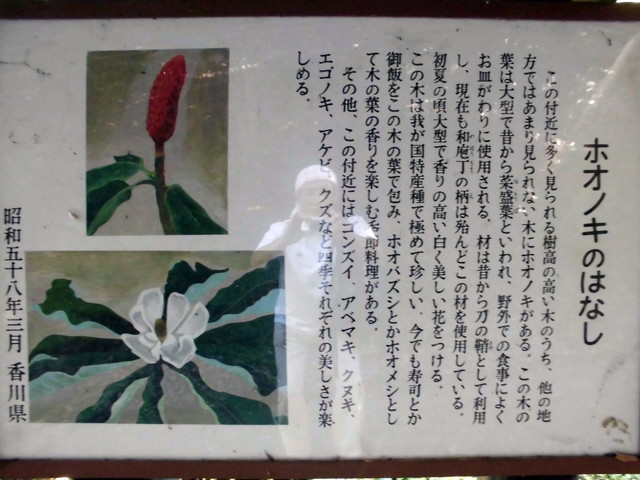 ホオノキのはなし
この付近に多く見られる樹高の高い木のうち、他の地
方ではあまり見られない木にホオノキがある。この木の
葉は大型で昔から菜盛葉といわれ、野外での食事によく
お皿がわりに使用される。材は昔から刀の鞘として利用
し、現在も和庖丁の柄は殆んどこの材を使用している。
初夏の頃大型で香りの高い白く美しい花をつける。
この木は我が国特産種で極めて珍しい。今でも寿司とか
御飯をこの木の葉で包み、ホオバズシとかホオメシとし
て木の葉の香りを楽しむ季節料理がある。
その他、この付近にはゴンズイ、アベマキ、クヌギ、
エゴノキ、アケビ、クズなど四季それぞれの美しさが楽
しめる。
昭和五十八年三月 香川県